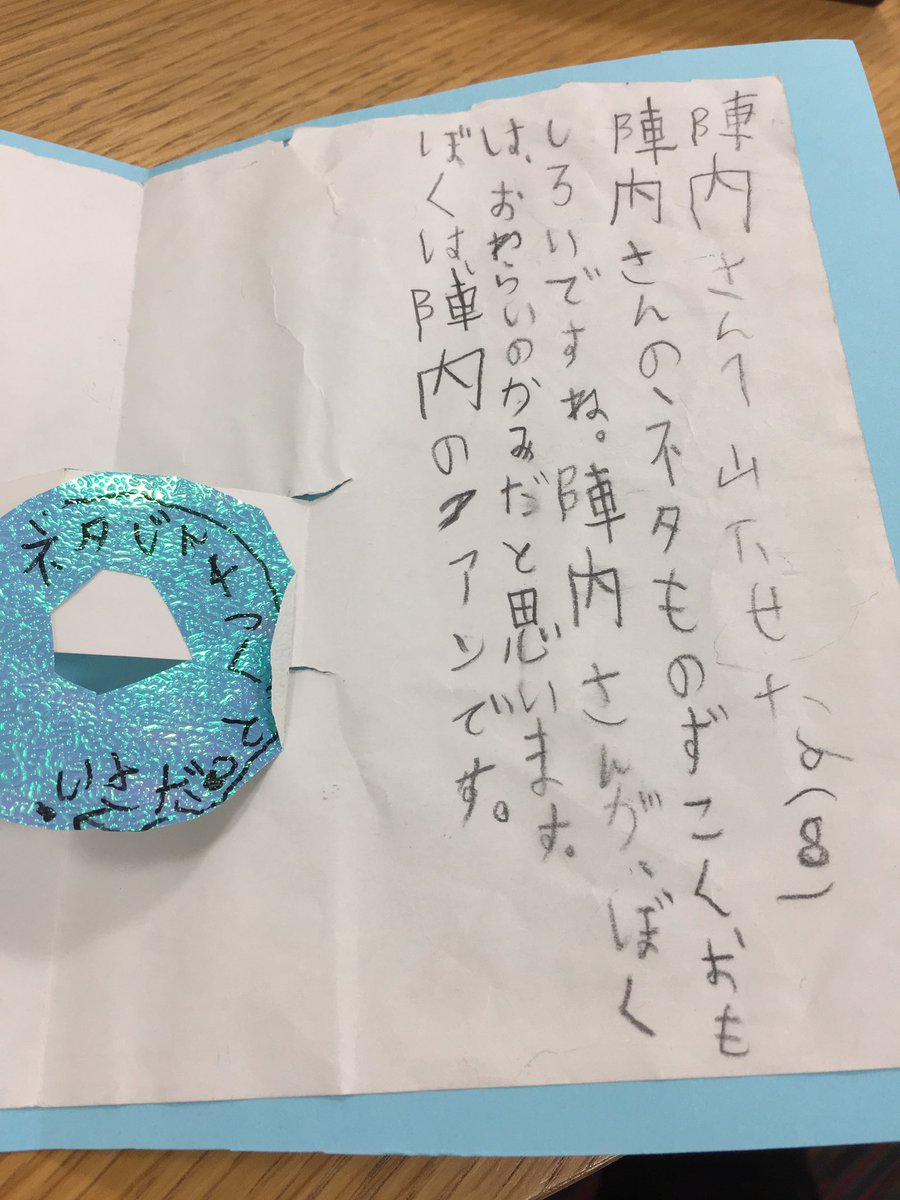 陣内さんへ 山下せな(8)
陣内さんの、ネタものずこく、おも
しろいですね。陣内さんが、ぼく
は、おわらいのかみだと思います。
ぼくは、陣内のファンです。
ネタ つくって
ください。